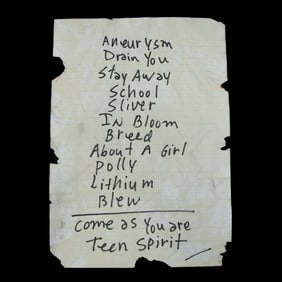 Aneurysm
Drain You
Stay Away
School
Sliver
In Bloom
Breed
About A Girl
Polly
Lithium
Blew
Come as You are
Teen Spirit